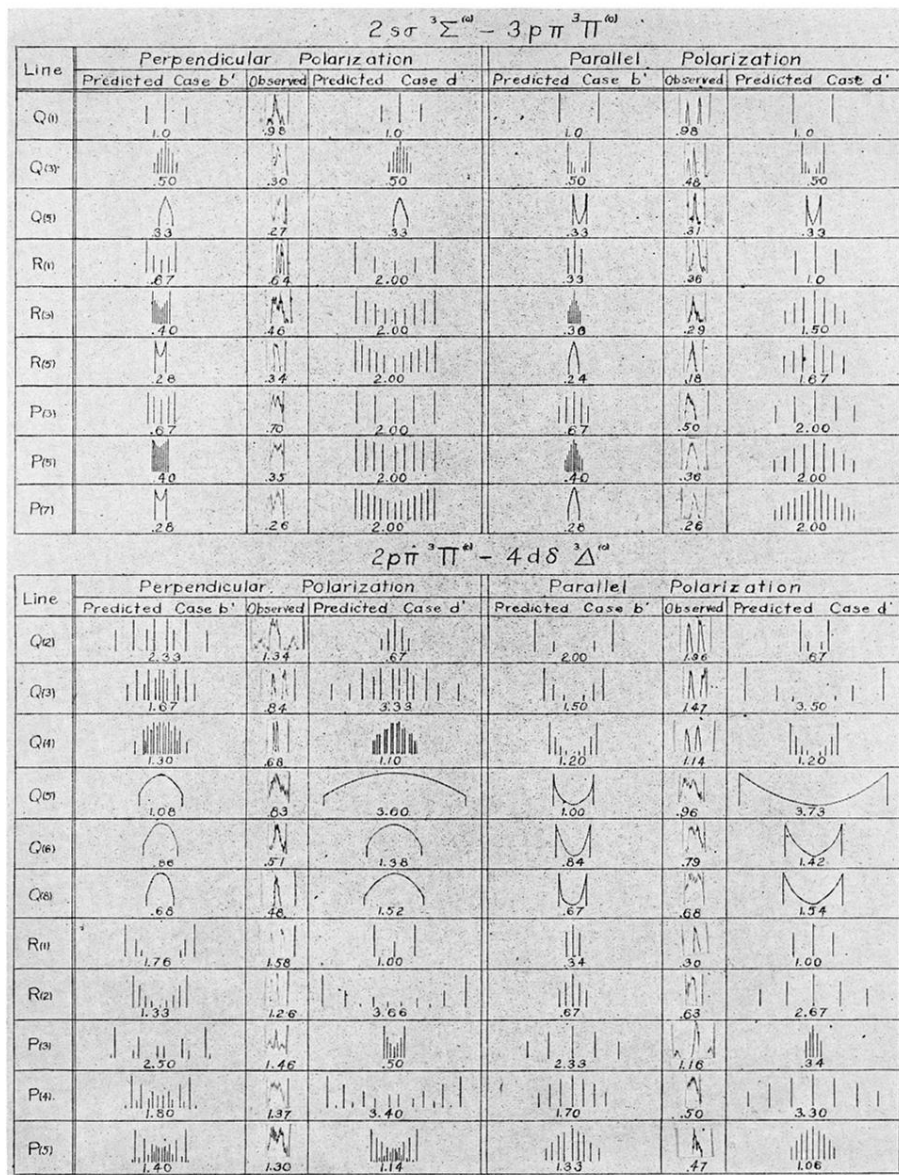 2sσ ³Σ⁽ᵃ⁾ – 3pπ ³Π⁽ᵃ⁾
Line Perpendicular Polarization Parallel Polarization
Predicted Case b' Observed Predicted Case d' Predicted Case b' Observed Predicted Case d'
Q(1) 1.0 .98 1.0 1.0 .98 1.0
Q(3) .50 .30 .50 .50 .48 .50
Q(5) .33 .27 .33 .33 .31 .33
R(1) .67 .64 2.00 .33 .36 1.0
R(3) .40 .46 2.00 .36 .29 1.50
R(5) .28 .34 2.00 .24 .18 1.67
P(3) .67 .70 2.00 .67 .50 2.00
P(5) .40 .35 2.00 .40 .36 2.00
P(7) .28 .26 2.00 .28 .26 2.00
2pπ ³Π – 4dδ ³Δ
Line Perpendicular Polarization Parallel Polarization
Predicted Case b' Observed Predicted Case d' Predicted Case b' Observed Predicted Case d'
Q(2) 2.33 1.34 .67 2.00 1.96 .67
Q(3) 1.67 .84 3.33 1.50 1.47 3.50
Q(4) 1.30 .68 1.10 1.20 1.14 1.20
Q(5) 1.08 .83 3.60 1.00 .96 3.73
Q(6) .86 .51 1.38 .84 .79 1.42
Q(8) .68 .48 1.52 .67 .68 1.54
R(1) 1.76 1.58 1.00 .34 .30 1.00
R(2) 1.33 1.26 3.66 .67 .63 2.67
P(3) 2.50 1.46 .50 2.33 1.16 .34
P(4) 1.80 1.37 3.40 1.70 .50 3.30
P(5) 1.40 1.30 1.14 1.33 .47 1.06